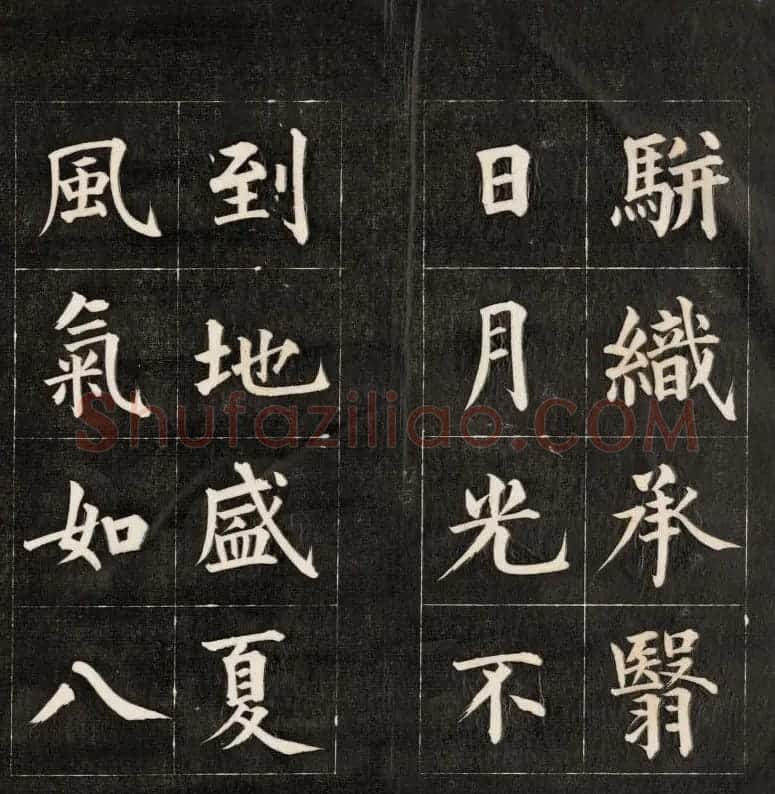 駢織承翳
日月光不
到地盛夏
風氣如八
Shufaziliao.COM